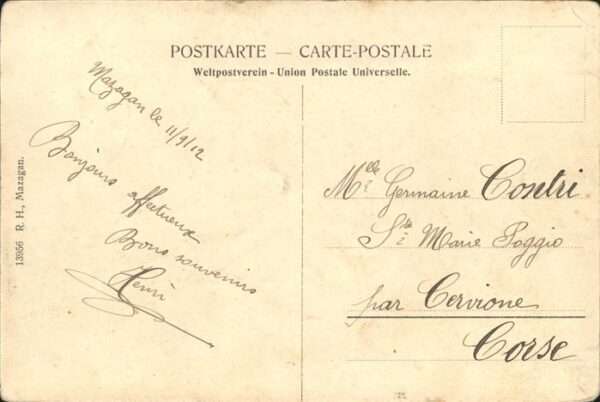 POSTKARTE — CARTE-POSTALE
Weltpostverein - Union Postale Universelle.
Mazagan le 11/9/12
Bonjours affectueux
Bons souvenirs
Henri
Mlle Germaine Contri
Ste Marie Poggio
par Cervione
Corse
13956 R. H., Mazagan.